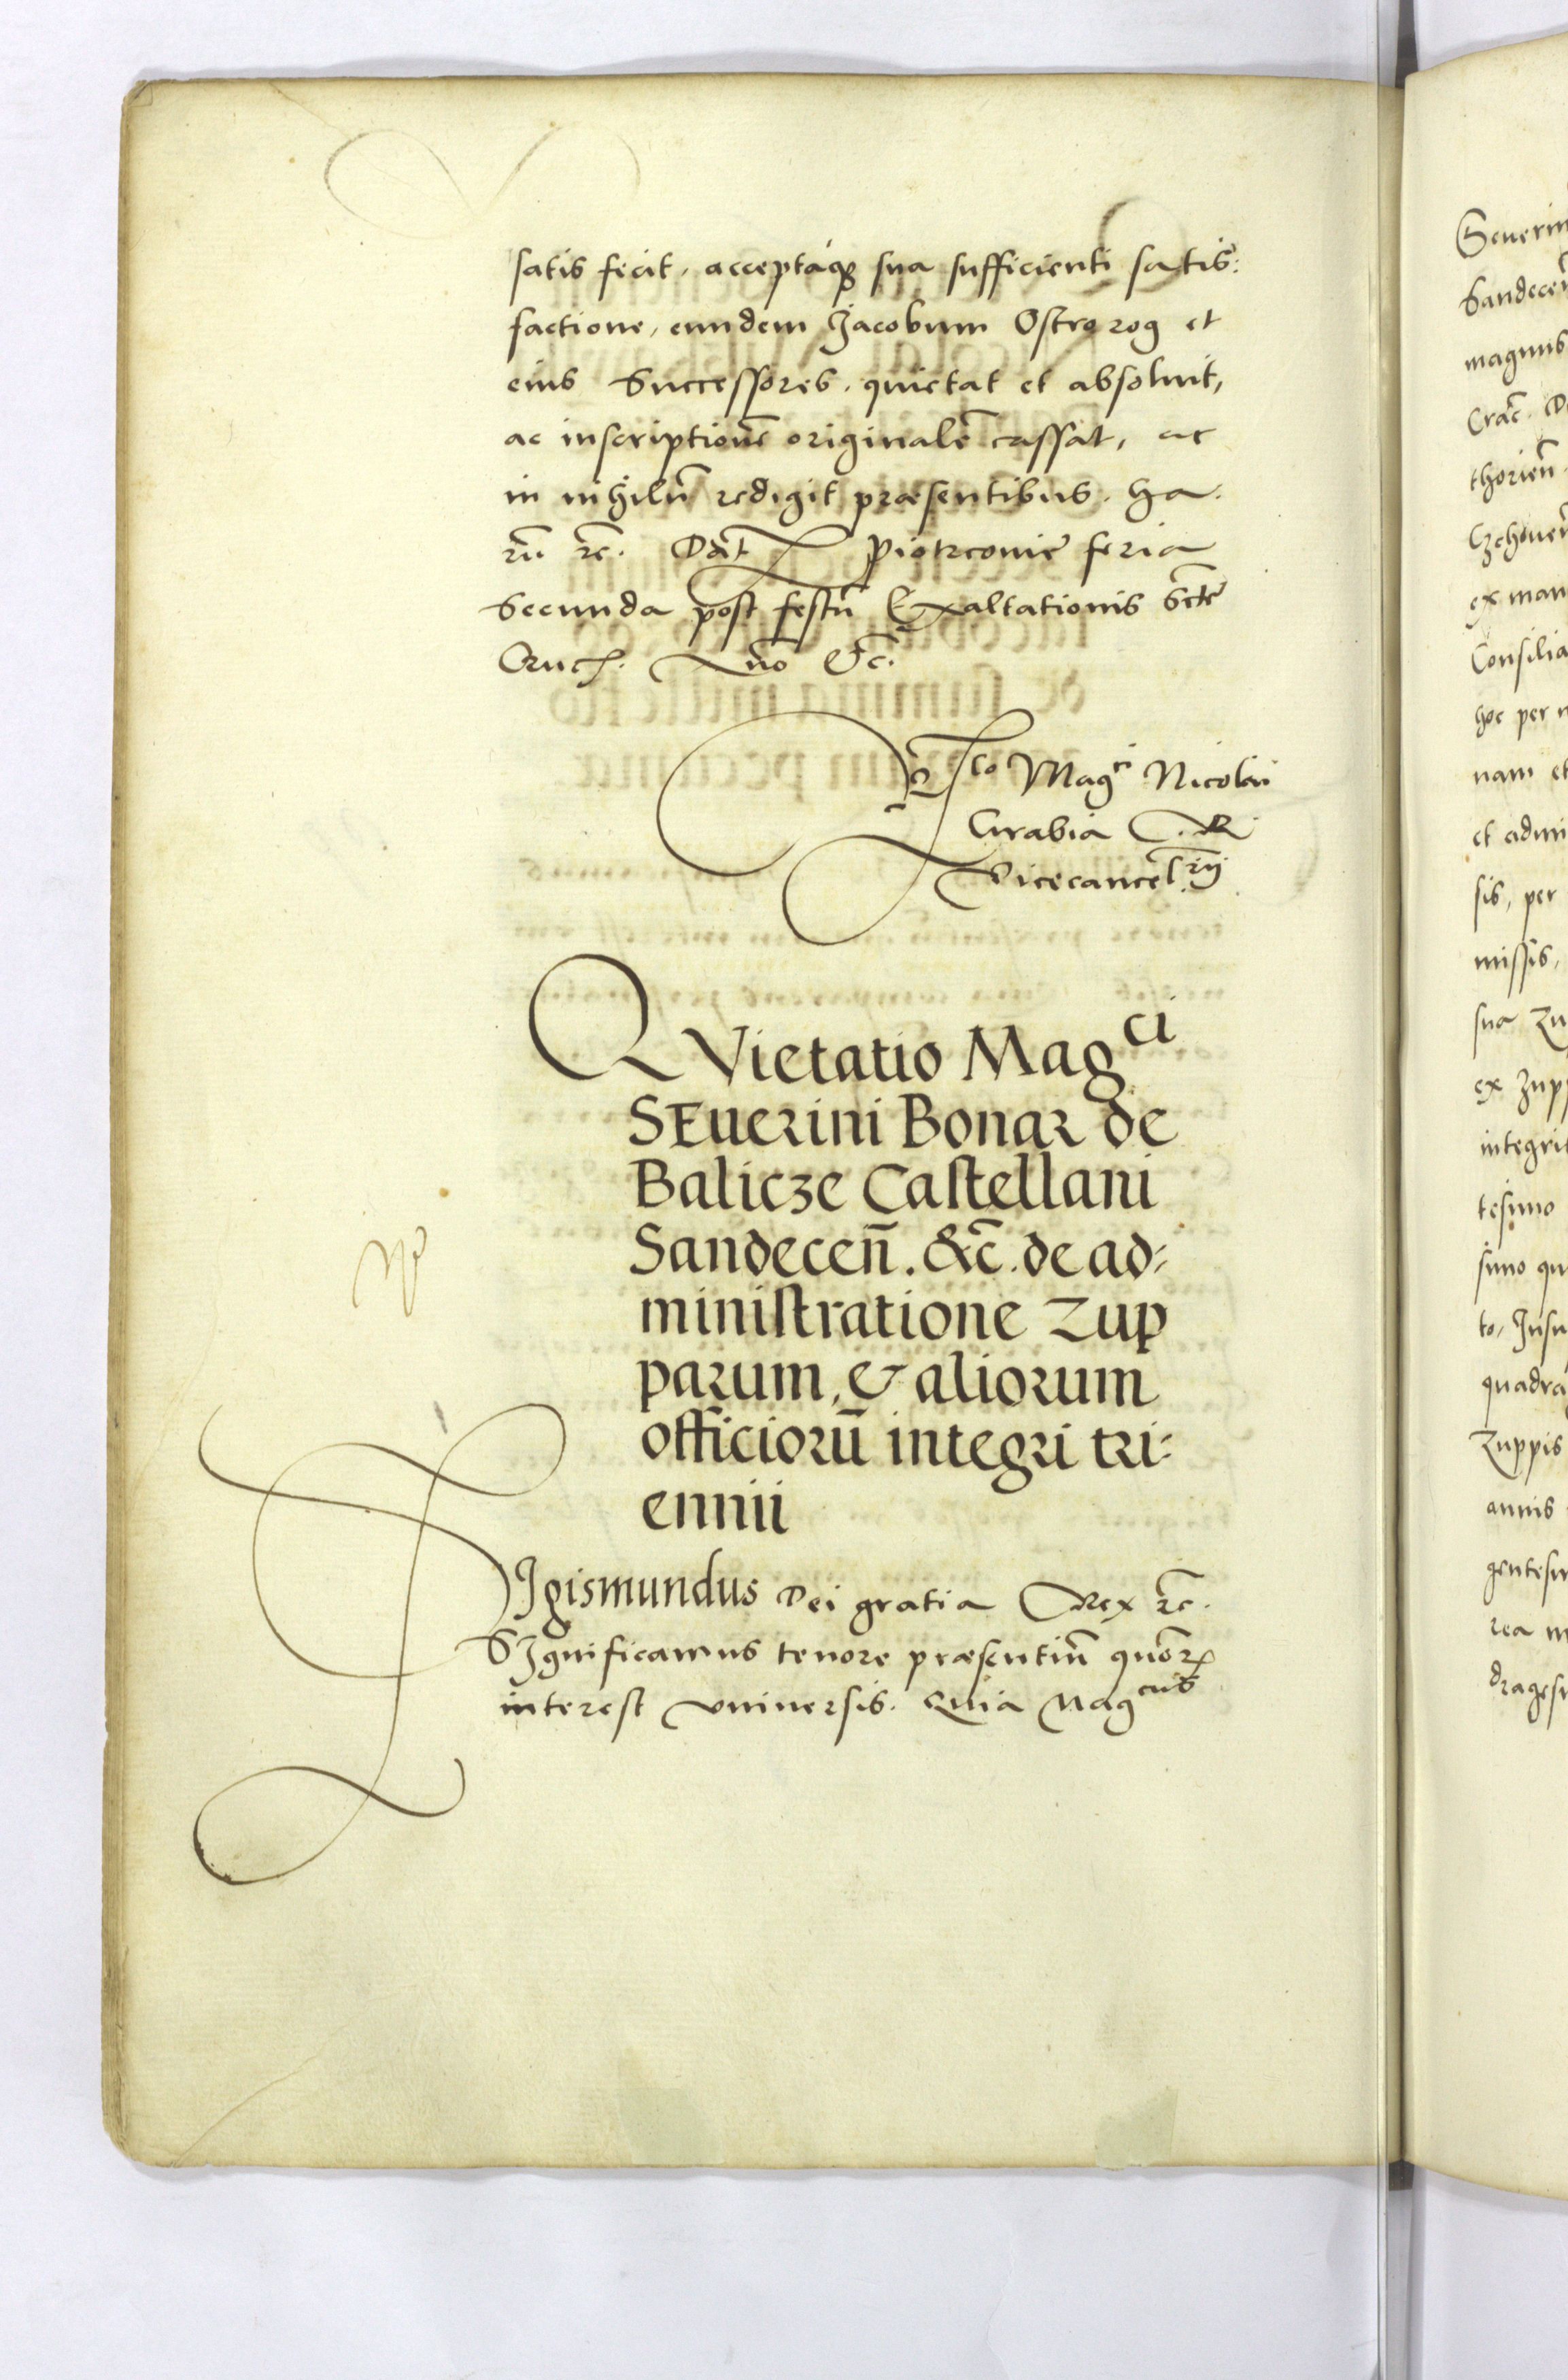 satis fecit, acceptaq3 sua sufficienti satis:
factione, eundem Jacobum Ostrorog et
eius Successores, quietat et absoluit,
ac inscriptionē originalē cassat, ac
in nihilū redigit præsentibus. Ha.
rū rc̄. Dat̄ Piotrcovie feria
Secunda post festū Exaltationis Sctē
Cruc. Āno &c̄.
Rlᵗⁱᵒ Magᶜⁱ Nicolai
Grabia R
Vicecancelrij
QVietatio Magᶜⁱ
SEuerini Bonar de
Balicze Castellani
Sandecen̄. &c̄. de ad:
ministratione Zup
parum, & aliorum
officiorū integri tri:
ennii
SIgismundus Dei gratia Rex rc̄.
SIgnificamus tenore præsentiū quōr
interest vniuersis. Quia Magᶜᵘˢ
Seuerin
Sandecen̄
magnus
Crac̄.
thorien̄
ex man
Consilia
hoc per
nam et
et admi
sis, per
missis,
sua Zu
ex Zupp
integri
tesimo
simo qu
to, Insu
quadra
Zuppis
annis
gentesi
rea
dragesi